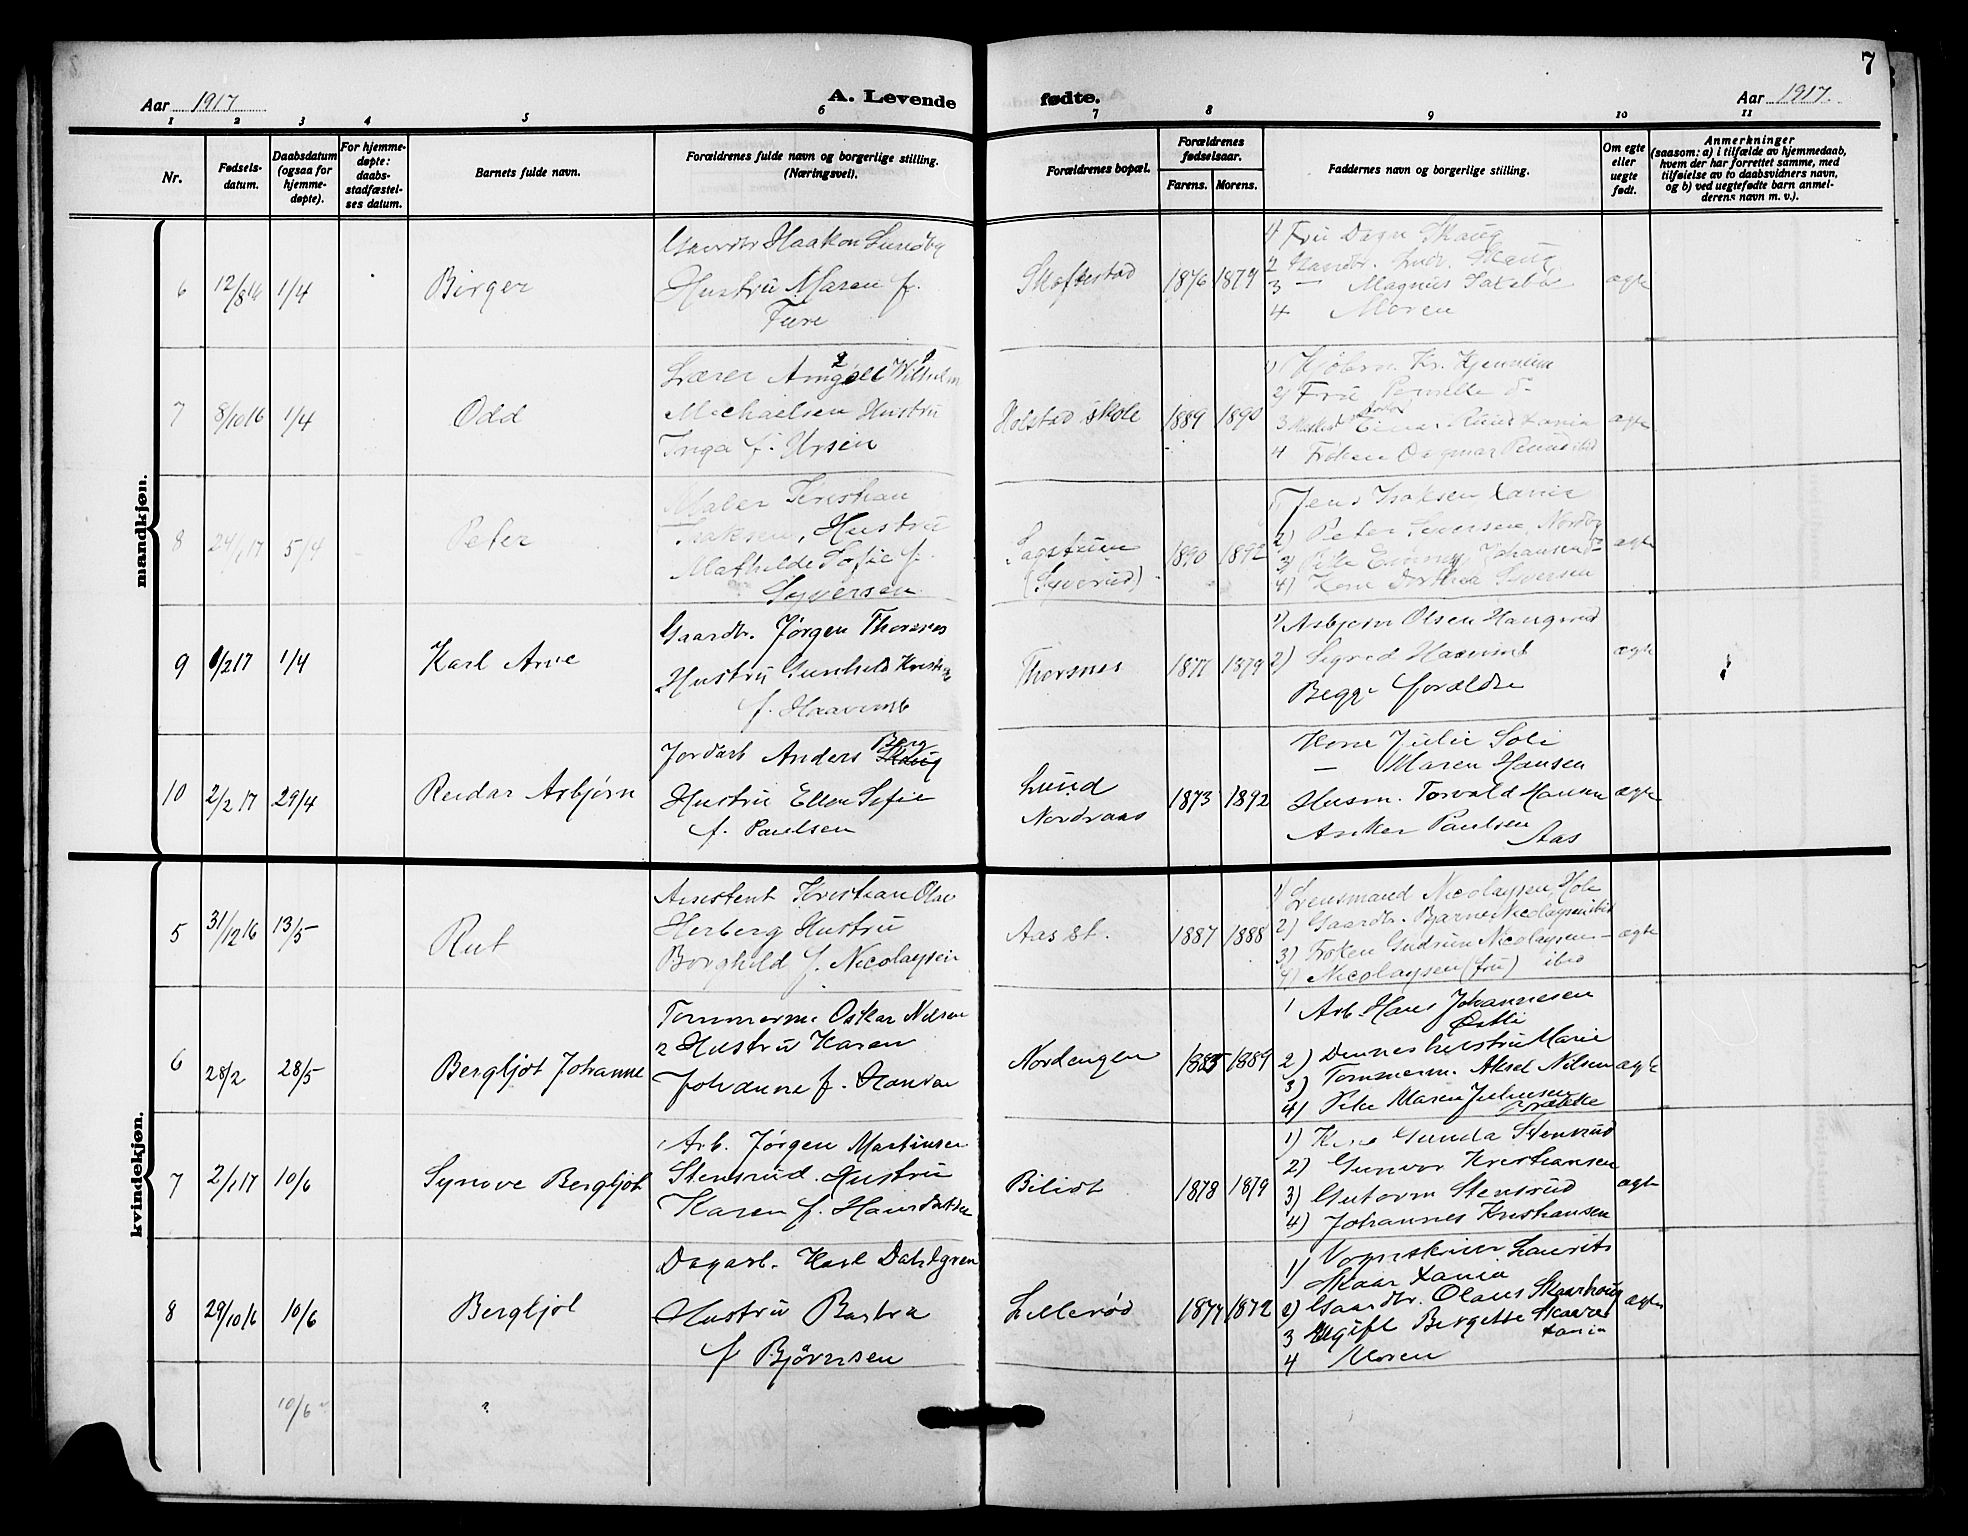 7
Aar 1917
A. Levende
fødte.
Aar 1917.
1 2 3 4 5 6 7 8 9 10 11
Nr.
Fødsels-
datum.
Daabsdatum
(ogsaa for
hjemme-
døpte).
For hjemme-
døpte:
daabs-
stadfæstel-
ses datum.
Barnets fulde navn.
Forældrenes fulde navn og borgerlige stilling.
(Næringsvei).
Forældrenes bopæl.
Forældrenes
fødselsaar.
Farens. Morens.
Faddernes navn og borgerlige stilling.
Om egte
eller
uegte
født.
Anmerkninger
(saasom: a) i tilfælde av hjemmedaab,
hvem der har forrettet samme, med
tilføielse av to daabsvidners navn,
og b) ved uegtefødte barn anmel-
derens navn m. v.).
mandkjøn.
6 12/8 16 1/4 Birger
Haakon Lundby
Hustru Maren f.
Ture
Skoftestad 1876 1879
1) Fru Dagn Skaug
2
3 — Magnus
4 Moren
ægte
7 8/10 16 1/4 Odd
Lærer Wilhelm
Michaelsen Hustru
Inga f. Ursin
Holstad skole 1889 1890
2) Fru Pernille
3 Einar Ruud
4 Frøken Dagmar Ruud ibid
ægte
8 24/1 17 5/4 Peter
Maler Kristian
Isaksen, Hustru
Mathilde Sofie f.
Syversen
Sagstuen
(Syverud) 1890 1892
1) Jens Isaksen Xania
2) Peter Syversen, Nordby
3) Pike Emmy Johansen
4) Kone Dorthea Syversen
ægte
9 1/2 17 1/4 Karl Arve
Gaardbr. Jørgen Thorsnes
Hustru Gunhild
f. Haavimb
Thorsnes 1877 1879
1) Asbjørn Olsen Haugerud
2) Sigrid Haavimb
Begge forældre
ægte
10 2/2 17 29/4 Reidar Asbjørn
Jordarb Anders Berg
Hustru Ellen Sofie
f. Paulsen
Lund
Nordraas 1873 1892
Kone Julie Soli
— Maren Hansen
Husm. Torvald Hansen
Anker Paulsen
Aas
ægte
kvindekjøn.
5 31/12 16 13/5 Rut
Assistent Kristian Olav
Herberg Hustru
Borghild f. Nicolaysen
Aas st. 1887 1888
1) Lensmand Nicolaysen, Hole
2) Gaardbr. Bjarne Nicolaysen ibid
3) Frøken Gudrun Nicolaysen —
4) Nicolaysen (fru) ibid
ægte
6 28/2 28/5 Bergljot Johanne
Tømmerm. Oskar Nilsen
Hustru Karen
Johanne f. Hansen
Nordengen 1885 1889
1 Arb. Hans Johannesen
Østli
2) Dennes hustru Marie
3) Tømmerm. Aksel Nilsen
4) Pike Maren Juliussen
Brække
ægte
7 2/1 17 10/6 Synøve Bergljot
Arb. Jørgen Martinsen
Stensrud. Hustru
Karen f. Hansdatter
Bilidt 1878 1879
1) Kone Gunda Stensrud
2) Gunvor Kristiansen
3) Gutorm Stensrud
4) Johannes Kristiansen
ægte
8 29/10 16 10/6 Bergljot
Dagarb. Karl Dahlgren
Hustru Barbra
f. Bjørnsen
Lillerød 1877 1872
1) Vognskriver Laurits
Skaar Xania
2) Gaardbr. Olaus Skaarhaug
3 Ugift Bergitte Skaare
Xania
4 Moren
ægte
10/6